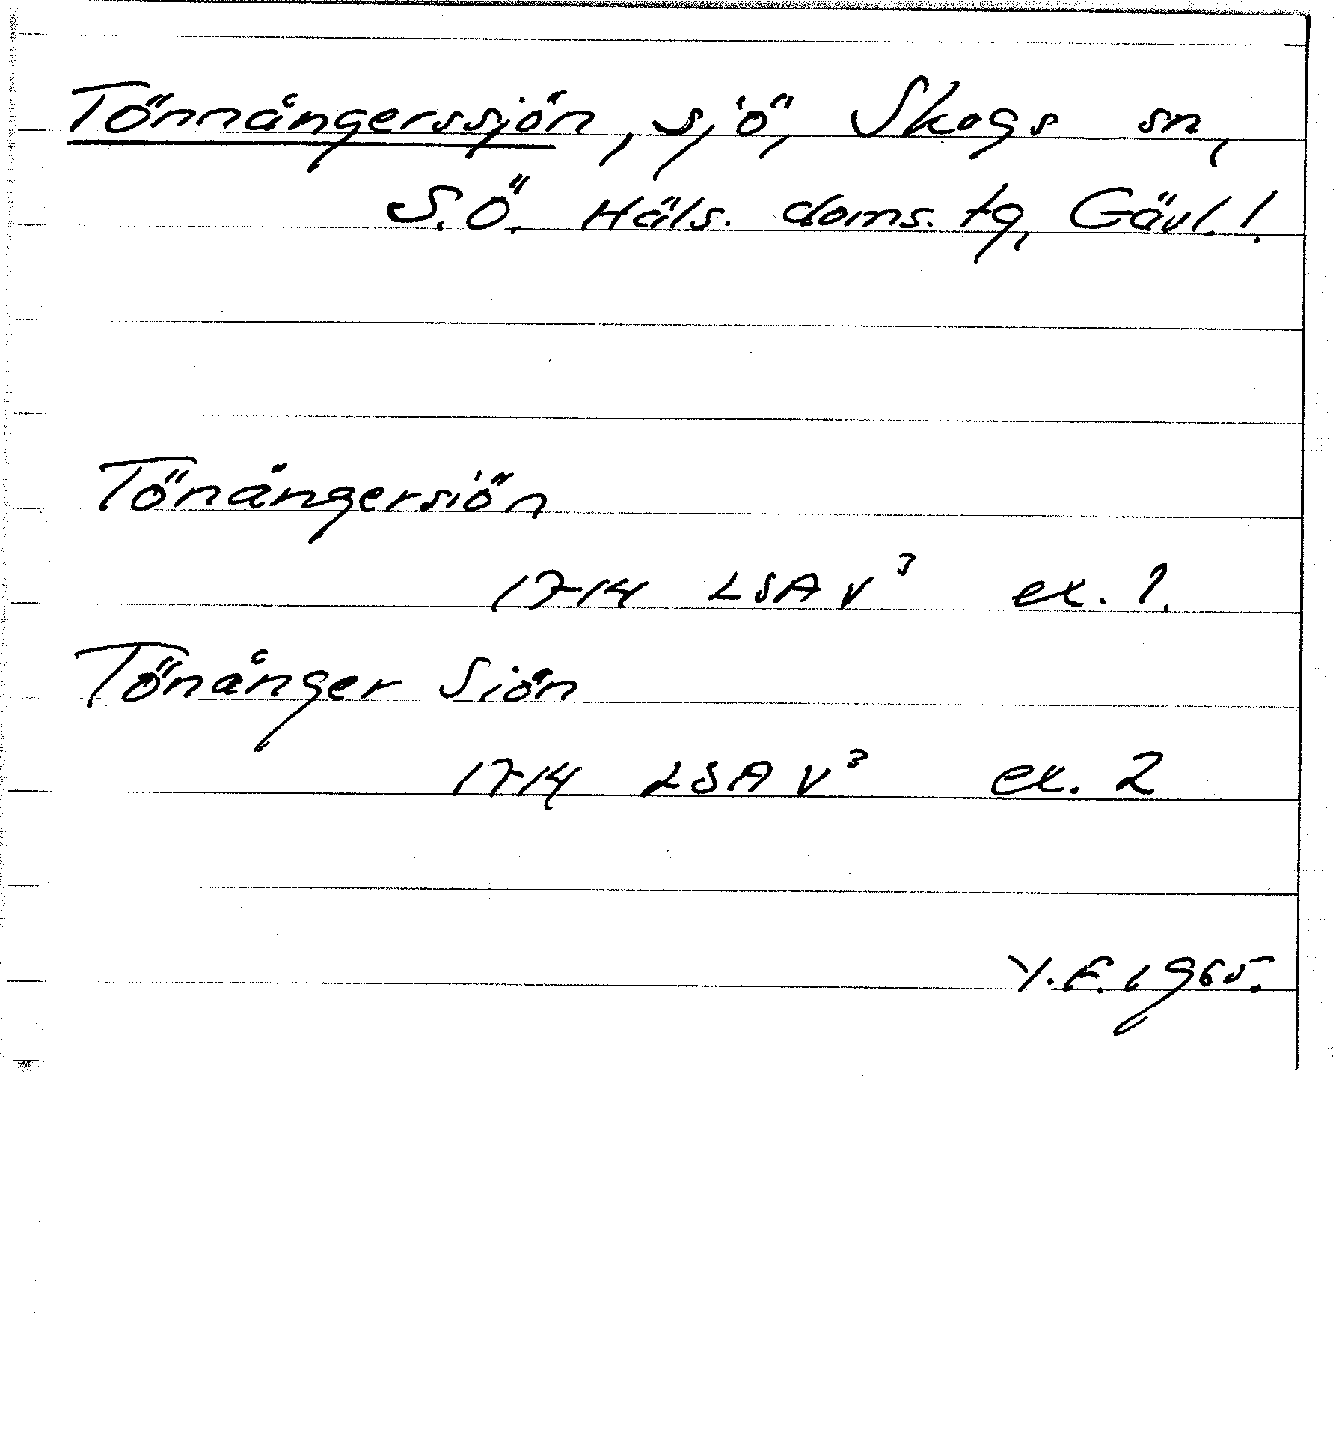 Tönnångerssjön, sjö, Skogs sn,
S.Ö. Häls. doms. tg, Gävl. l.
Tönångersiön
1714 LSA V³ ex. 1.
Tönånger Siön
1714 LSA V³ ex. 2
Y.F. 1965.